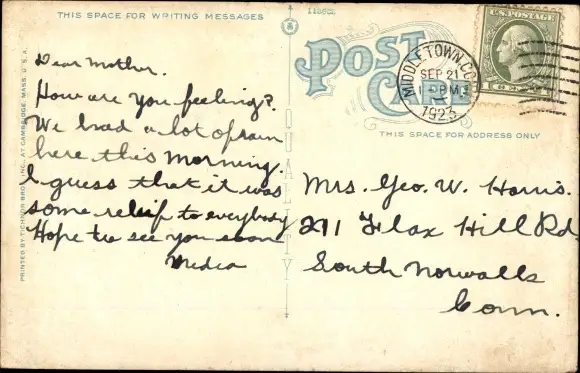 THIS SPACE FOR WRITING MESSAGES
Dear Mother.
How are you feeling?
We had a lot of rain
here this morning.
I guess that it was
some relief to everybody
Hope to see you soon
Medea
PRINTED BY TICHNOR BROS. INC., AT CAMBRIDGE, MASS. U.S.A.
QUALITY
POST
CARD
MIDDLETOWN, CO
SEP 21
1923
U.S. POSTAGE
THIS SPACE FOR ADDRESS ONLY
Mrs. Geo. W. Harris.
211 Flax Hill Rd
South Norwalk
Conn.